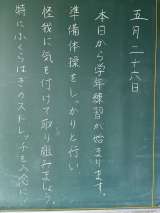 五月二十六日
本日から学年練習が始まります。
準備体操をしっかりと行い、
怪我に気を付けて取り組みましょう。
特にふくらはぎのストレッチを入念に